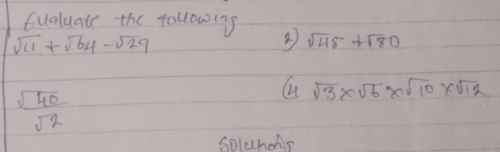 Evaluate the following
√11 + √64 - √29 2) √45 + √80
√40 / √2 (4 √3 × √6 × √10 × √12
Solutions